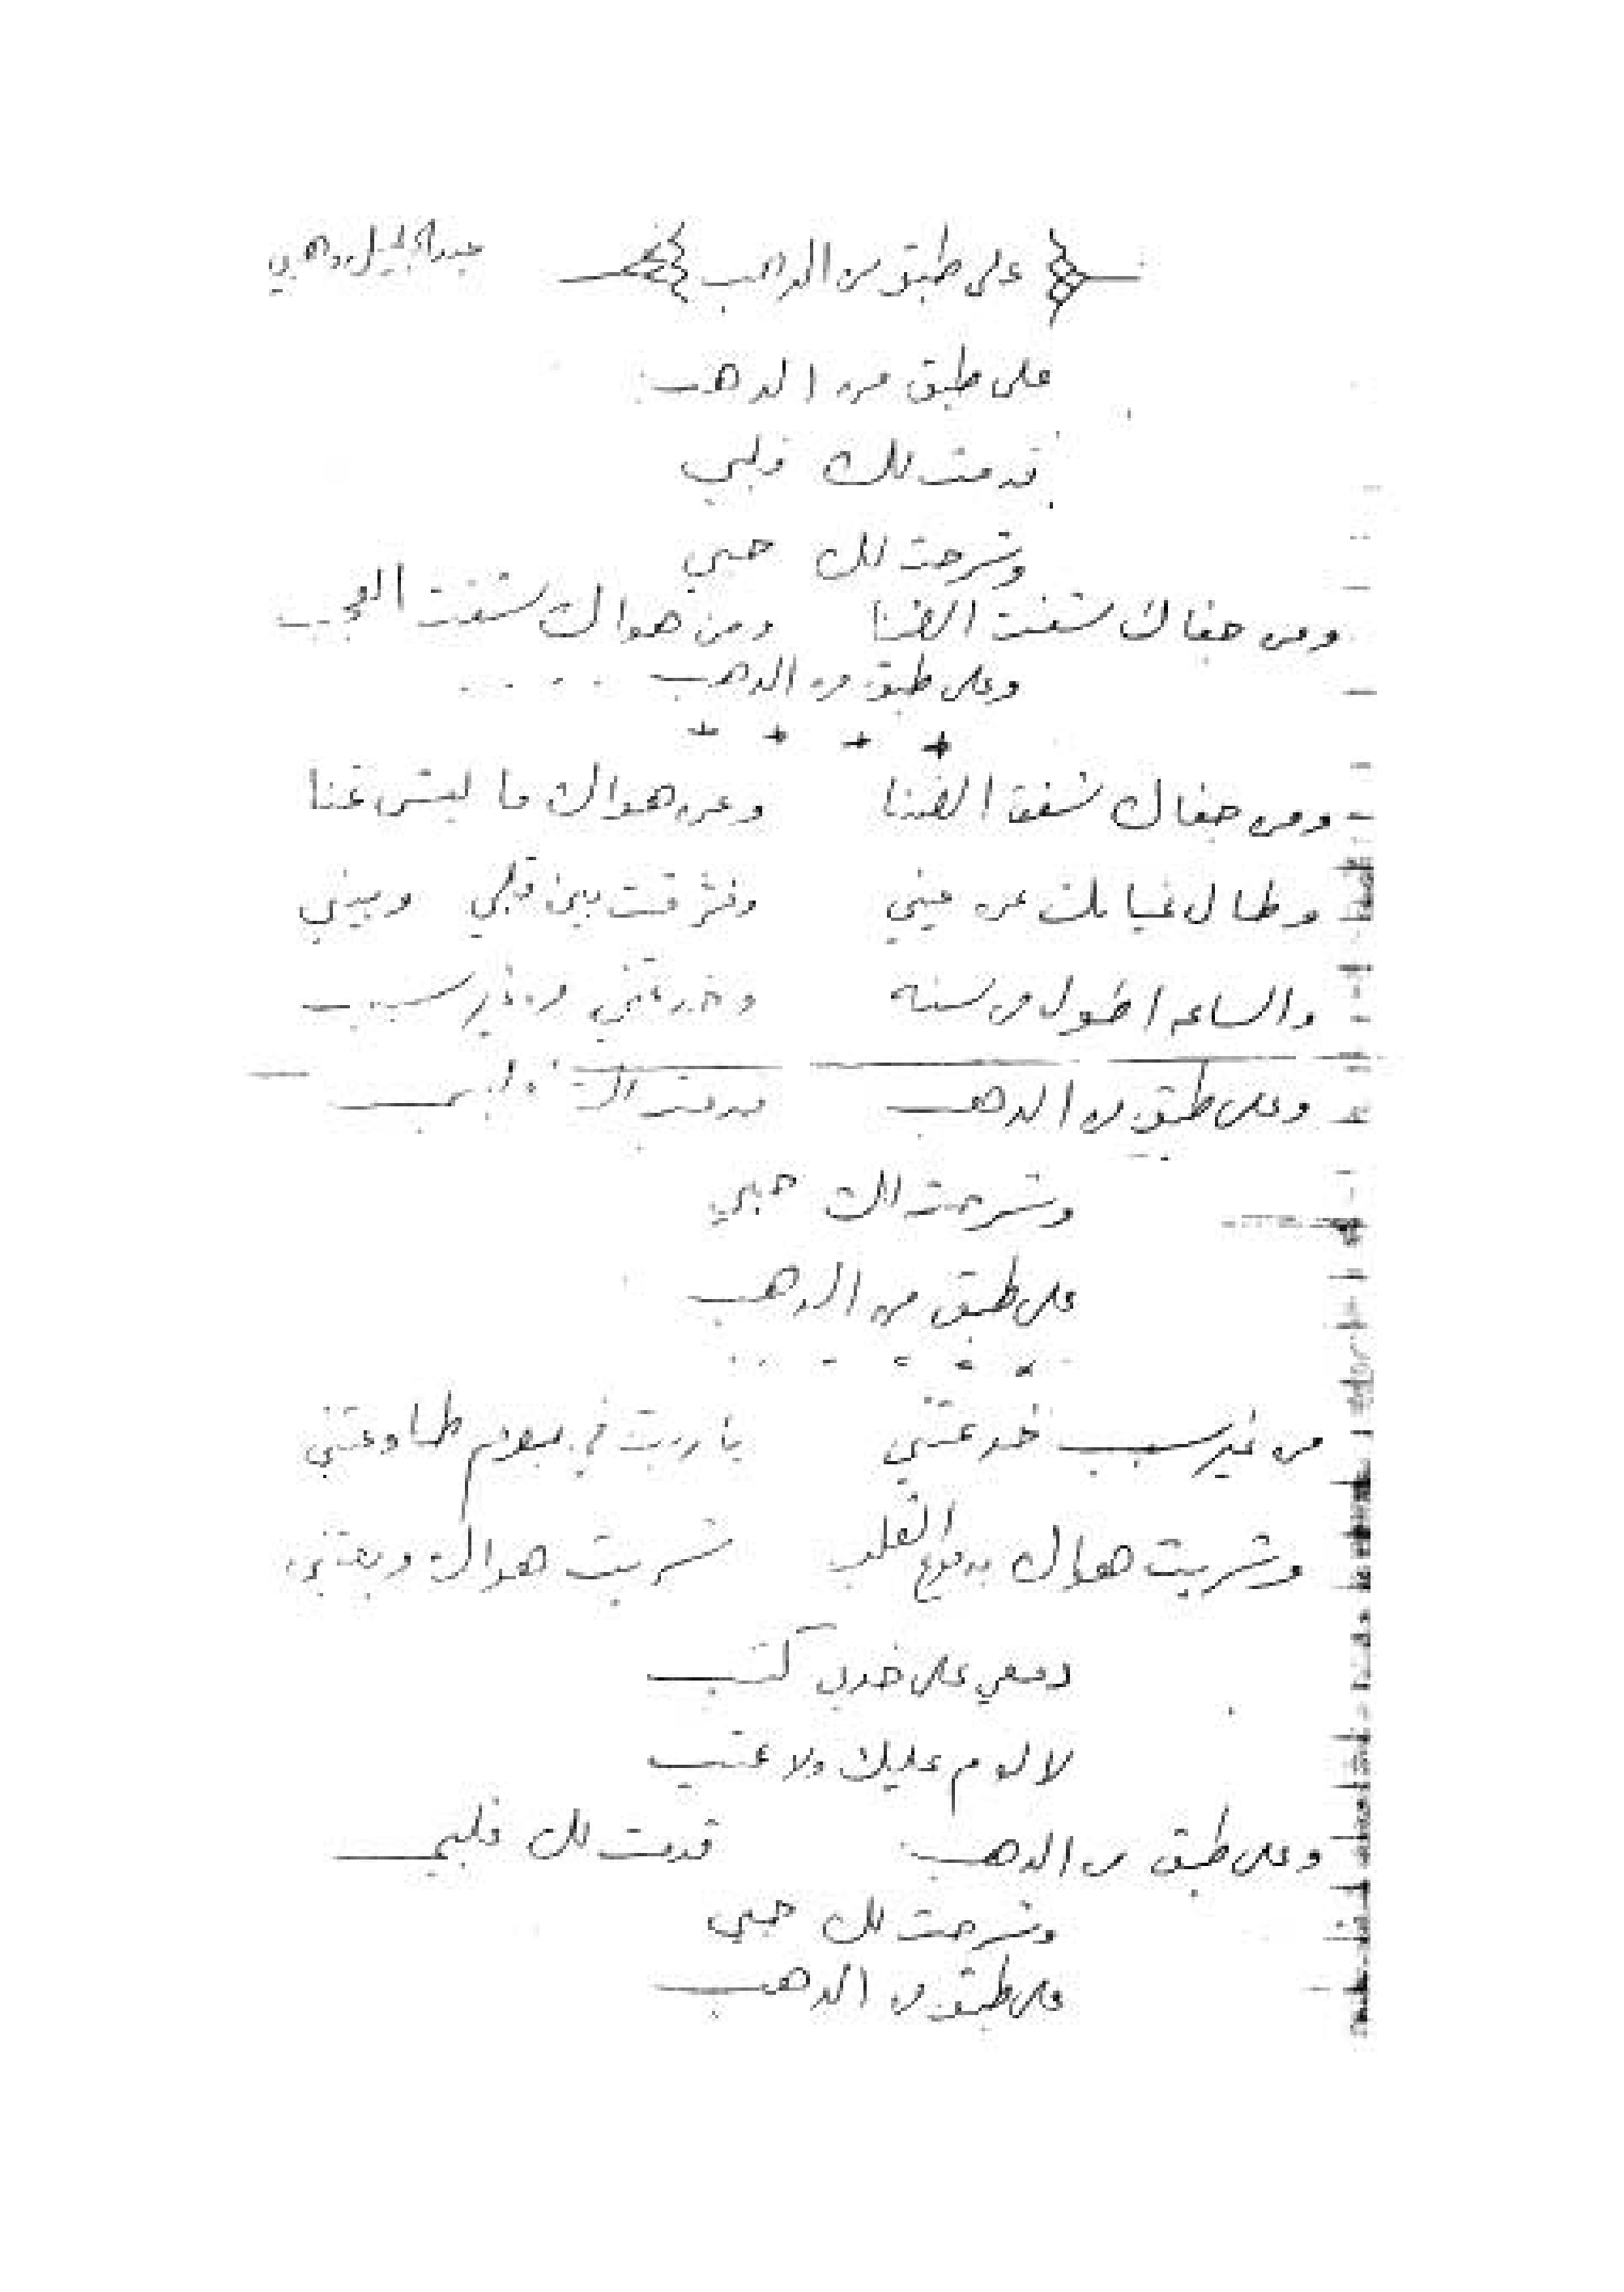 على طبق من الدهب عبد الجليل وهبي
على طبق من الدهب
قدمت لك قلبي
وشرحت لك حبي
ومن جفاك شفت الضنا ومن هواك شفت العجب
وعلى طبق من الدهب . . . . .
+ + + +
ومن جفاك شفت الضنا وعن هواك ما ليش غنا
وطال غيابك عن عيني وفرقت بين قلبي وبيني
والساعه اطول من سنه وخدعتني من غير سبب
وعلى طبق من الدهب قدمت لك قلبي
وشرحت لك حبي
على طبق من الدهب
من غير سبب خدعتني يا ريت في يوم طاوعتني
وشريت هواك بدموع القلب شريت هواك وبعتني
دمعي على خدي كتب
لا لوم عليك ولا عتب
وعلى طبق من الدهب قدمت لك قلبي
وشرحت لك حبي
على طبق من الدهب